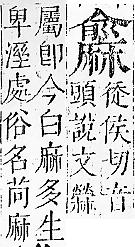 䵉
徒侯切音
頭說文檾
屬卽今白麻多生
卑溼處俗名苘麻